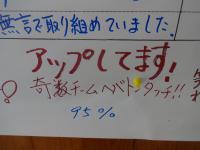 無言で取り組めていました。
アップしてます!
奇数チームへバトンタッチ!!
95%